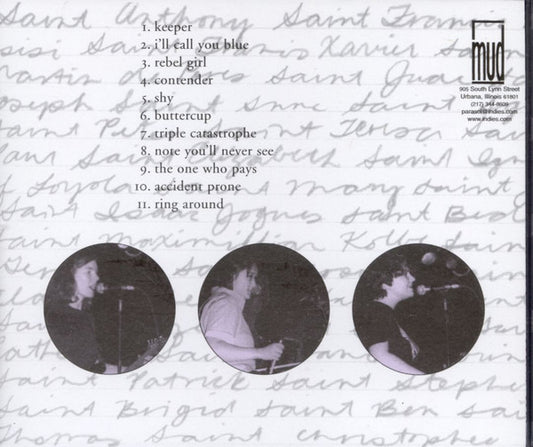 Saint Anthony Saint Francis
sisi Saint Francis Xavier Saint
Martin de Saint Juan
Joseph Saint Anne Saint
Saint Saint Teresa Saint
Paul Saint Elizabeth Saint Ign
of Loyola Saint Mary Saint
Saint Isaac Jogues Saint
Saint Maximilian Kolbe Saint
Saint Patrick Saint Stephe
Saint Brigid Saint Ben Sai
Thomas Saint Christophe
1. keeper
2. i'll call you blue
3. rebel girl
4. contender
5. shy
6. buttercup
7. triple catastrophe
8. note you'll never see
9. the one who pays
10. accident prone
11. ring around
mud
905 South Lynn Street
Urbana, Illinois 61801
(217) 344-8609
parasol@indies.com
www.indies.com